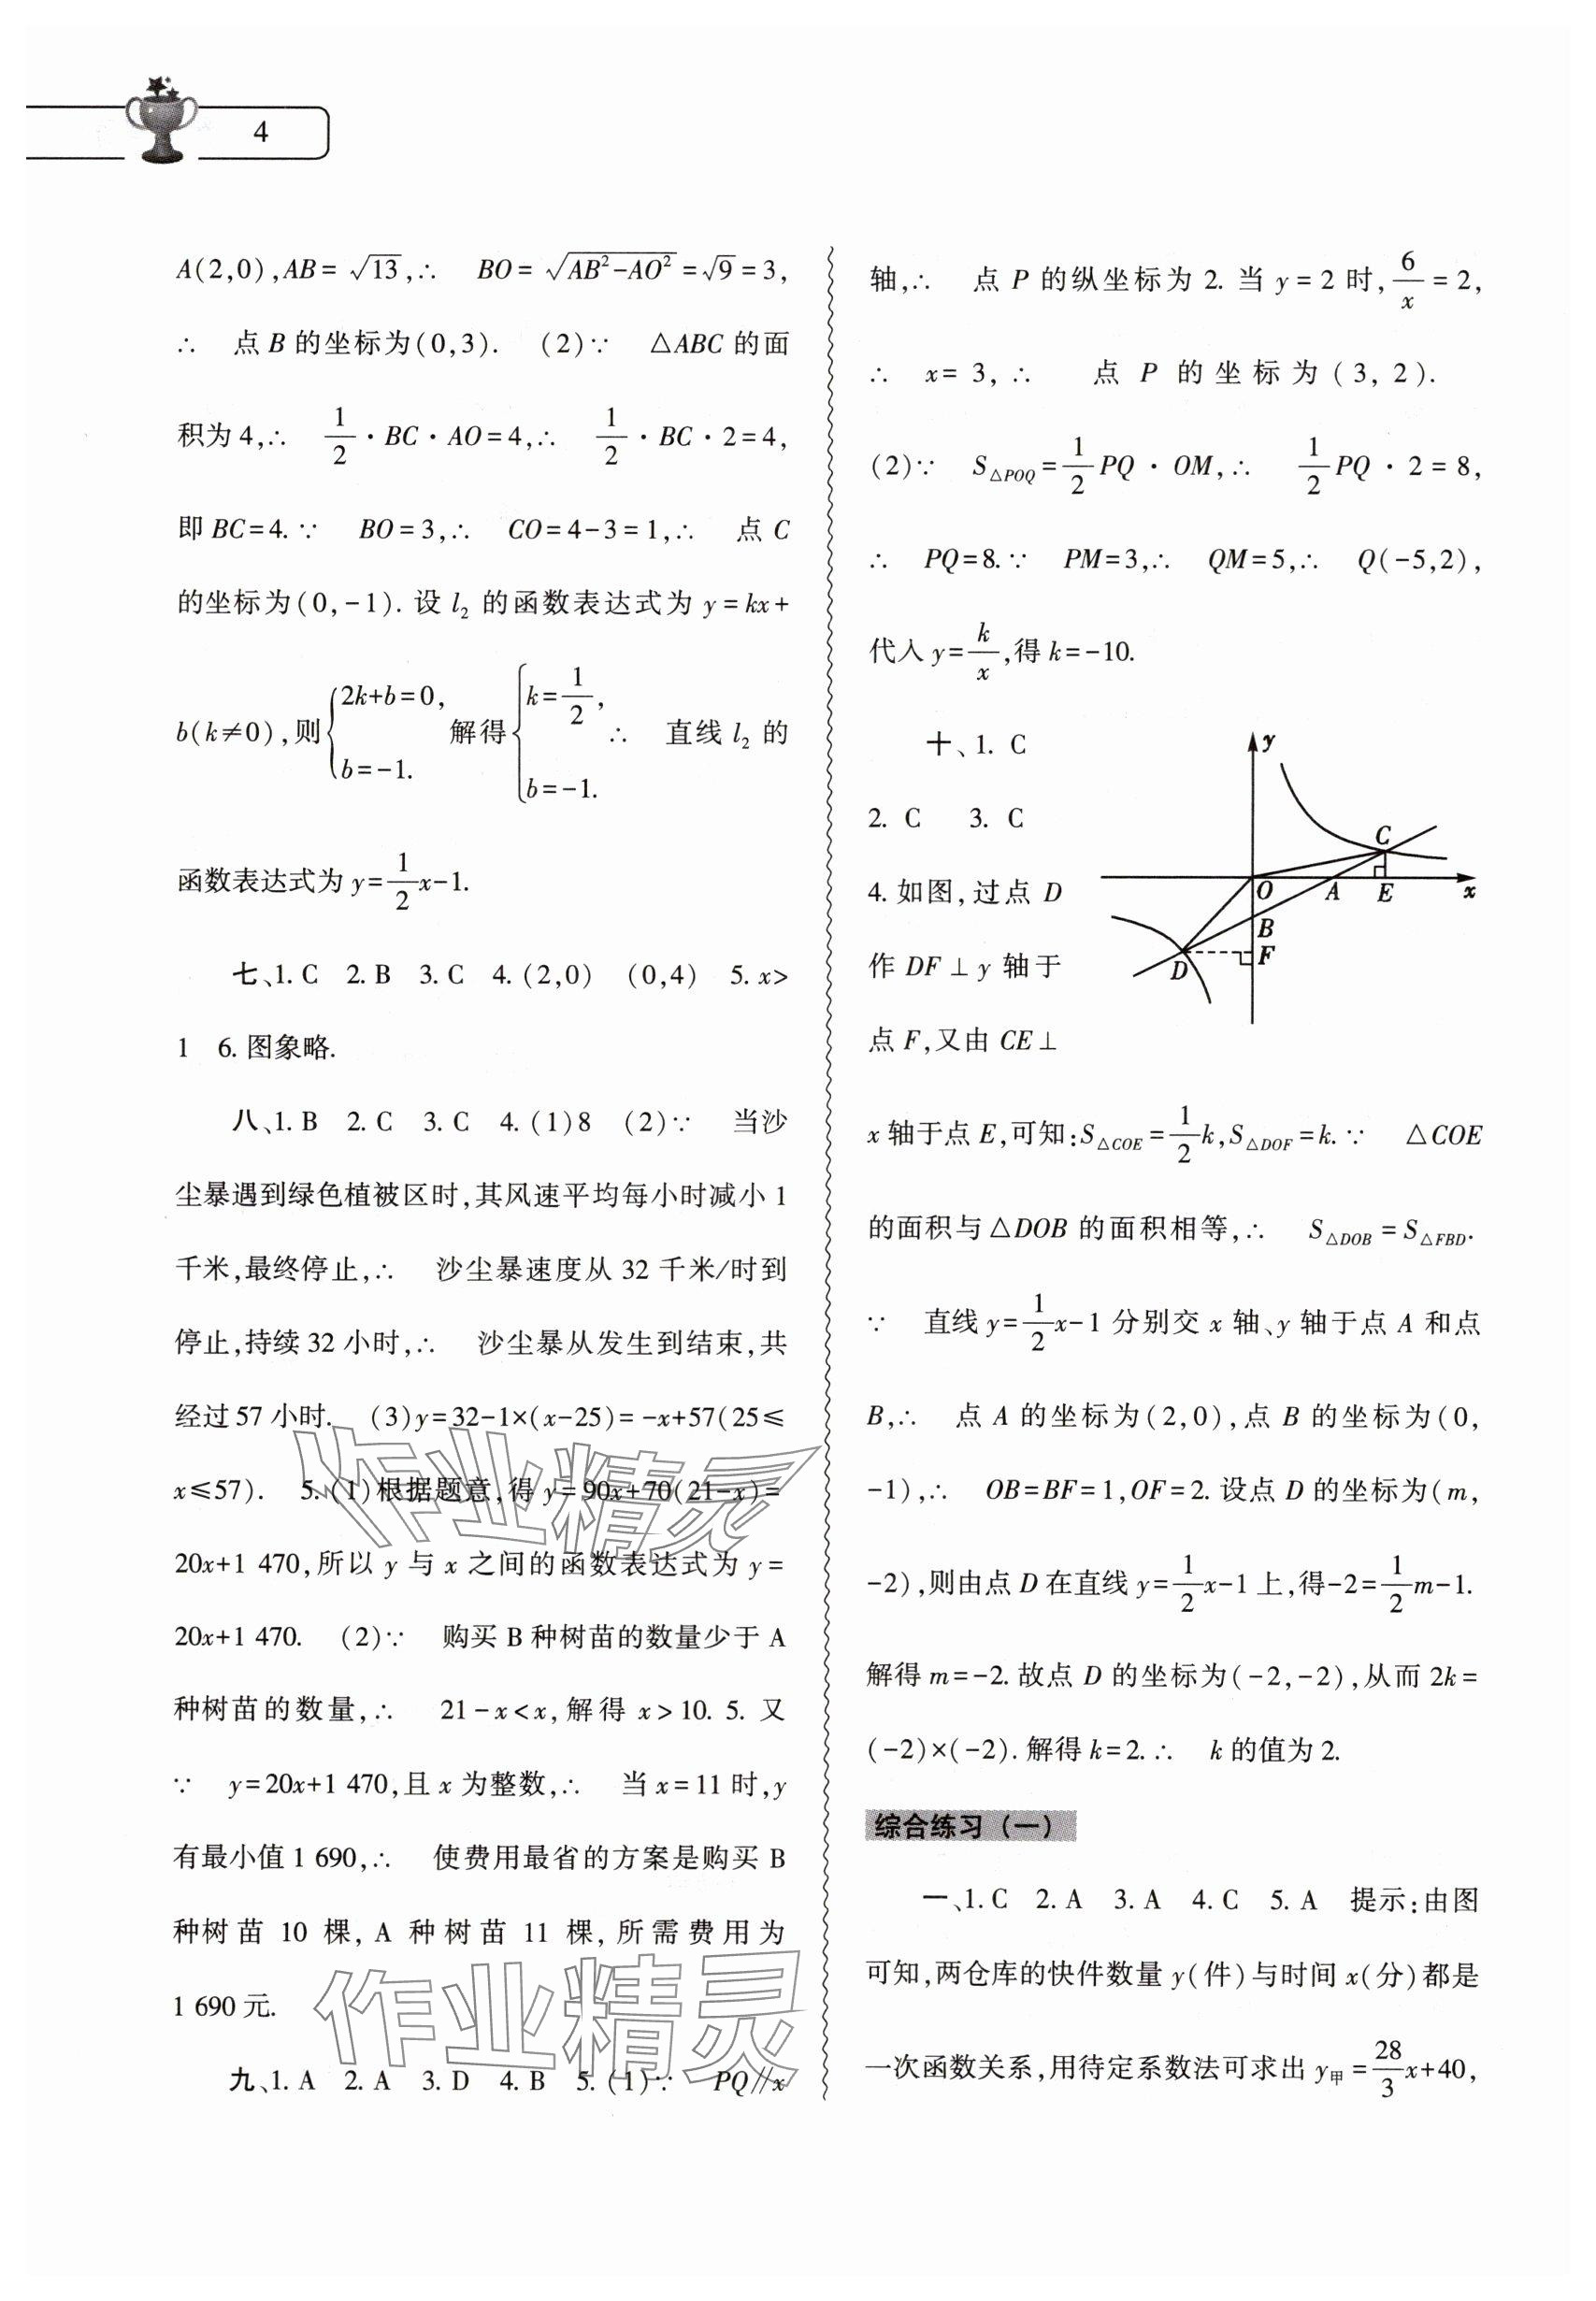 4
A(2,0),AB=√13,∴ BO=√(AB²-AO²)=√9=3,
∴ 点B的坐标为(0,3). (2)∵ △ABC的面
积为4,∴ 1/2·BC·AO=4,∴ 1/2·BC·2=4,
即BC=4.∵ BO=3,∴ CO=4-3=1,∴ 点C
的坐标为(0,-1).设l₂的函数表达式为y=kx+
b(k≠0),则{2k+b=0, b=-1. 解得{k=1/2, b=-1. ∴ 直线l₂的
函数表达式为y=1/2x-1.
七、1. C 2. B 3. C 4. (2,0) (0,4) 5. x>
1 6. 图象略.
八、1. B 2. C 3. C 4. (1)8 (2)∵ 当沙
尘暴遇到绿色植被区时,其风速平均每小时减小1
千米,最终停止,∴ 沙尘暴速度从32千米/时到
停止,持续32小时,∴ 沙尘暴从发生到结束,共
经过57小时. (3)y=32-1×(x-25)=-x+57(25≤
x≤57). 5. (1)根据题意,得y=90x+70(21-x)=
20x+1 470,所以y与x之间的函数表达式为y=
20x+1 470. (2)∵ 购买B种树苗的数量少于A
种树苗的数量,∴ 21-x<x,解得x>10. 5. 又
∵ y=20x+1 470,且x为整数,∴ 当x=11时,y
有最小值1 690,∴ 使费用最省的方案是购买B
种树苗10棵,A种树苗11棵,所需费用为
1 690元.
九、1. A 2. A 3. D 4. B 5. (1)∵ PQ∥x
轴,∴ 点P的纵坐标为2. 当y=2时,6/x=2,
∴ x=3,∴ 点P的坐标为(3,2).
(2)∵ S△POQ=1/2PQ·OM,∴ 1/2PQ·2=8,
∴ PQ=8.∵ PM=3,∴ QM=5,∴ Q(-5,2),
代入y=k/x,得k=-10.
十、1. C
2. C 3. C
4. 如图,过点D
作DF⊥y轴于
点F,又由CE⊥
y
C
O
A
E
x
B
F
D
x轴于点E,可知:S△COE=1/2k,S△DOF=k.∵ △COE
的面积与△DOB的面积相等,∴ S△DOB=S△FBD.
∵ 直线y=1/2x-1分别交x轴、y轴于点A和点
B,∴ 点A的坐标为(2,0),点B的坐标为(0,
-1),∴ OB=BF=1,OF=2. 设点D的坐标为(m,
-2),则由点D在直线y=1/2x-1上,得-2=1/2m-1.
解得m=-2. 故点D的坐标为(-2,-2),从而2k=
(-2)×(-2). 解得k=2.∴ k的值为2.
综合练习(一)
一、1. C 2. A 3. A 4. C 5. A 提示:由图
可知,两仓库的快件数量y(件)与时间x(分)都是
一次函数关系,用待定系数法可求出y甲=28/3x+40,
作业精灵
作业精灵